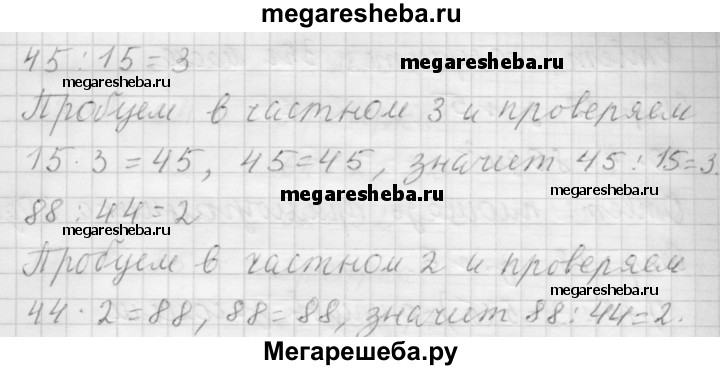 megaresheba.ru
45 : 15 = 3
megaresheba.ru
megaresheba.ru
Пробуем в частном 3 и проверяем
15 · 3 = 45, 45 = 45, значит 45 : 15 = 3.
megaresheba.ru
megaresheba.ru
88 : 44 = 2
megaresheba.ru
Пробуем в частном 2 и проверяем
megaresheba.ru
44 · 2 = 88, 88 = 88, значит 88 : 44 = 2.
Мегарешеба.ру